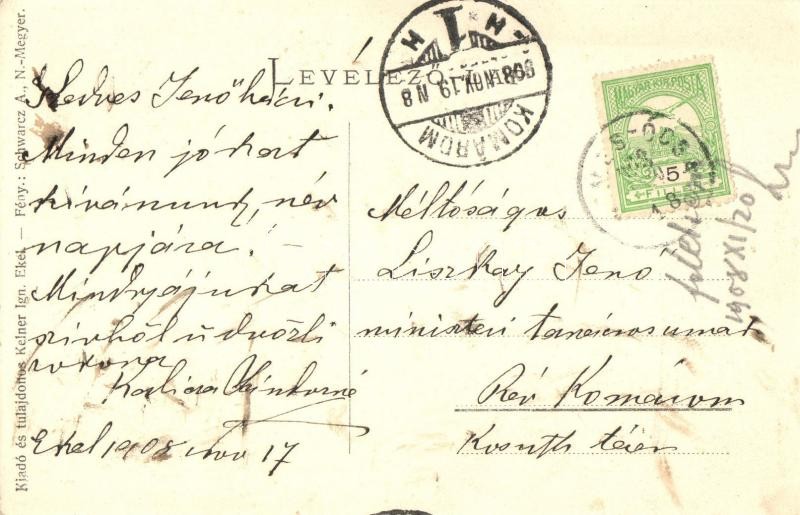 LEVELEZŐ-LAP
Kedves Jenő bácsi.
Minden jókat
kivánunk, név
napjára! –
Mindnyájukat
szivből üdvözli
rokona
Kalicza Sándorné
Ekel 1908 nov 17
Kiadó és tulajdonos Kelner Ign. Ekel. — Fény.: Schwarcz A., N.-Megyer.
KOMÁROM
908 NOV. 19 N 8
H 1 H
MAGYAR KIR. POSTA
5
Méltóságos
Liszkay Jenő
ministeri tanácsos urnak
Rév Komárom
Kosuth téren
1908 XI/20